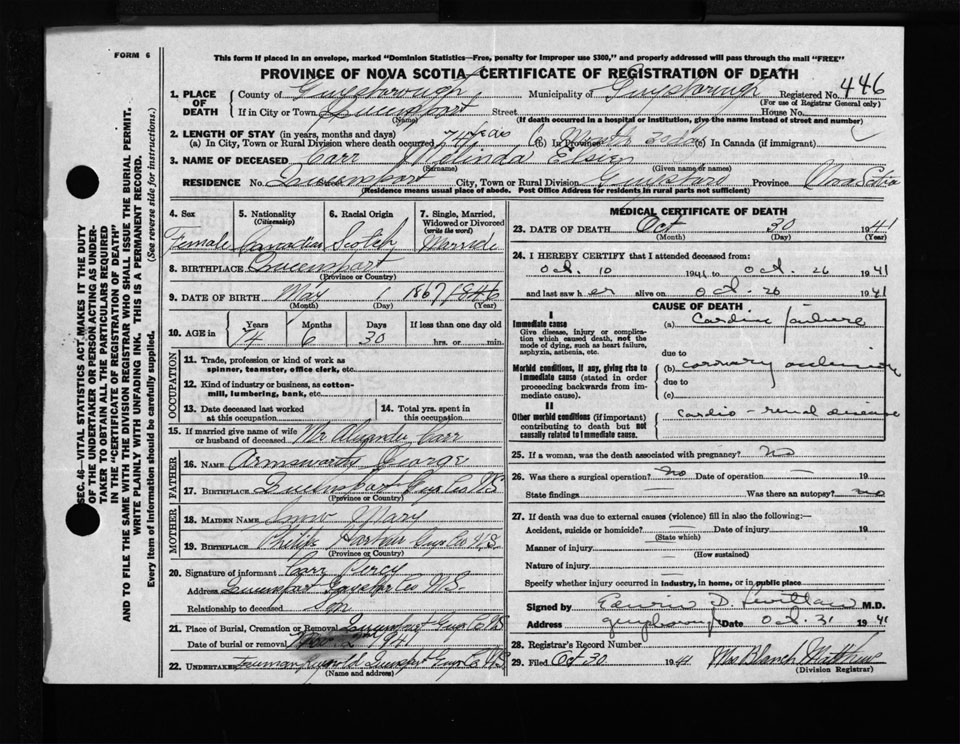 FORM 6
This form if placed in an envelope, marked "Dominion Statistics—Free, penalty for improper use $300," and properly addressed will pass through the mail "FREE"
PROVINCE OF NOVA SCOTIA, CERTIFICATE OF REGISTRATION OF DEATH
1. PLACE OF DEATH County of Guysborough Municipality of Guysborough Registered No. 446
(For use of Registrar General only)
If in City or Town Queensport Street House No.
(Name) (If death occurred in a hospital or institution, give the name instead of street and number)
2. LENGTH OF STAY (in years, months and days)
(a) In City, Town or Rural Division where death occurred 74 (b) In Province (c) In Canada (if immigrant)
3. NAME OF DECEASED Carr Melinda Elsie
(Surname) (Given name or names)
RESIDENCE No. Queensport City, Town or Rural Division Province Nova Scotia
(Residence means usual place of abode. Post Office Address for residents in rural parts not sufficient)
4. Sex Female
5. Nationality (Citizenship) Canadian
6. Racial Origin Scotch
7. Single, Married, Widowed or Divorced (write the word) Married
8. BIRTHPLACE Queensport
(Province or Country)
9. DATE OF BIRTH May 1 1867
(Month) (Day) (Year)
10. AGE in Years 74 Months 6 Days 30 If less than one day old hrs. or min.
OCCUPATION
11. Trade, profession or kind of work as spinner, teamster, office clerk, etc.
12. Kind of industry or business, as cotton-mill, lumbering, bank, etc.
13. Date deceased last worked at this occupation
14. Total yrs. spent in this occupation
15. If married give name of wife or husband of deceased Mr Alexander Carr
FATHER
16. NAME Armsworthy George
17. BIRTHPLACE Queensport Guys Co N.S.
(Province or Country)
MOTHER
18. MAIDEN NAME Snow Mary
19. BIRTHPLACE Philips Harbour Guys Co N.S.
(Province or Country)
20. Signature of informant Carr Percy
Address Queensport Guysboro Co N.S.
Relationship to deceased Son
21. Place of Burial, Cremation or Removal Queensport Guys Co N.S.
Date of burial or removal 1941
22. UNDERTAKER Queensport Guys Co N.S.
(Name and address)
MEDICAL CERTIFICATE OF DEATH
23. DATE OF DEATH Oct 30 1941
(Month) (Day) (Year)
24. I HEREBY CERTIFY that I attended deceased from:
Oct. 10 1941 to Oct. 26 1941
and last saw her alive on Oct. 26 1941
CAUSE OF DEATH
I
Immediate cause
Give disease, injury or complication which caused death, not the mode of dying, such as heart failure, asphyxia, asthenia, etc.
(a) Cardiac failure
due to
Morbid conditions, if any, giving rise to immediate cause (stated in order proceeding backwards from immediate cause).
(b) coronary occlusion
due to
(c)
II
Other morbid conditions (if important) contributing to death but not causally related to immediate cause.
Cardio-renal disease
25. If a woman, was the death associated with pregnancy? no
26. Was there a surgical operation? no Date of operation — 19
State findings — Was there an autopsy? no
27. If death was due to external causes (violence) fill in also the following:—
Accident, suicide or homicide? — Date of injury — 19
(State which)
Manner of injury —
(How sustained)
Nature of injury —
Specify whether injury occurred in industry, in home, or in public place
Signed by Edwin D. M.D.
Address Guysborough Date Oct. 31 1941
28. Registrar's Record Number
29. Filed Oct 30 1941 Mrs Blanch Matthews
(Division Registrar)
SEC. 46—VITAL STATISTICS ACT MAKES IT THE DUTY OF THE UNDERTAKER OR PERSON ACTING AS UNDERTAKER TO OBTAIN ALL THE PARTICULARS REQUIRED IN THE "CERTIFICATE OF REGISTRATION OF DEATH" AND TO FILE THE SAME WITH THE DIVISION REGISTRAR WHO SHALL ISSUE THE BURIAL PERMIT.
WRITE PLAINLY WITH UNFADING INK. THIS IS A PERMANENT RECORD.
Every item of information should be carefully supplied. (See reverse side for instructions.)